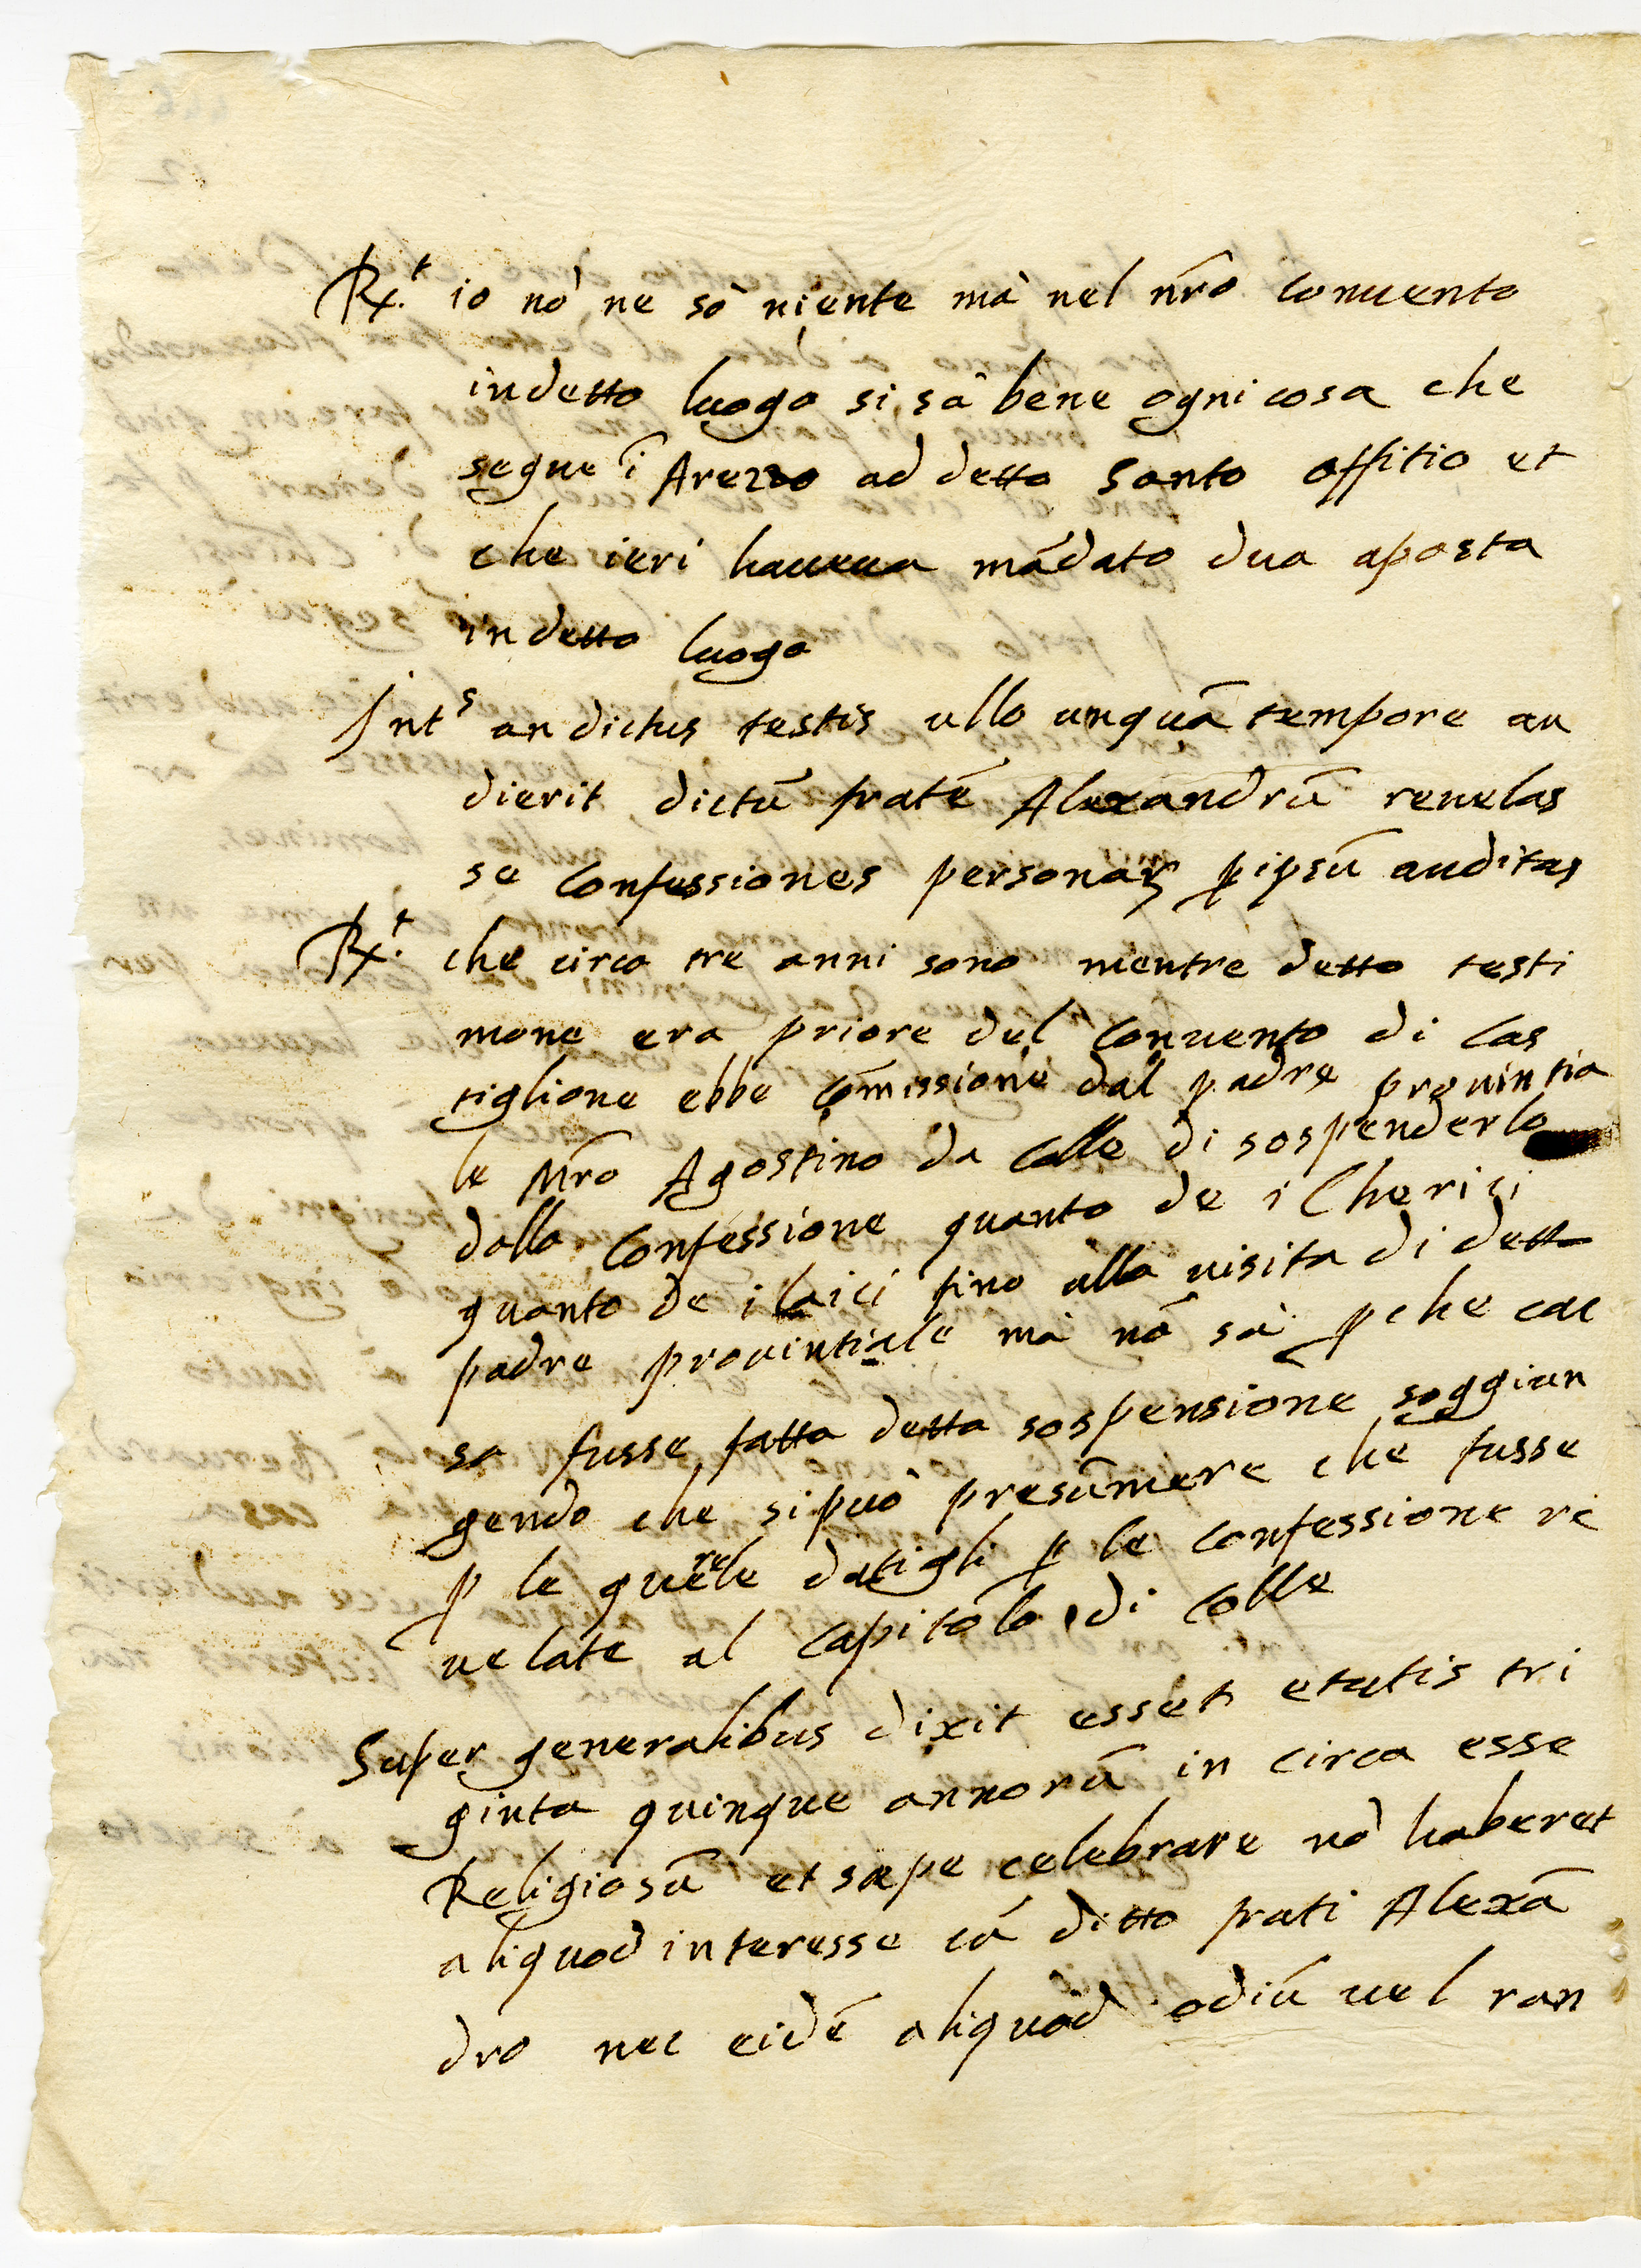 Rx.t io nō ne sò niente mà nel nr̄o conuento
indetto luogo si sà bene ogni cosa che
segue ī Arezzo ad detto santo offitio et
che ieri haueua mādato dua aposta
in detto luogo
Ints an dictus testis ullo unquā tempore au
dierit dictū fratē Alexandrū reuelas
se confessiones personaꝝ ꝑ ipsū auditas
Rx.t che circa tre anni sono mentre detto testi
mone era priore del conuento di cas
tiglione ebbe cōmissione dal padre prouintia
le Mr̄o Agostino da Colle di sospenderlo
dalla confessione quanto de i Cherici
quanto de i laici fino alla uisita di dett
padre prouintiale mà nō sà ꝑche cau
sa fusse fatta detta sospensione soggiun
gendo che si può presūmere che fusse
ꝑ le querele datigli ꝑ le confessione re
uelate al capitolo di Colle
Super generalibus dixit esset etatis tri
ginta quinque annorū in circa esse
Religiosū et sæpe celebrare nō haberet
aliquod interesse cū ditto frati Alexā
dro nec eidē aliquod odiū uel ran